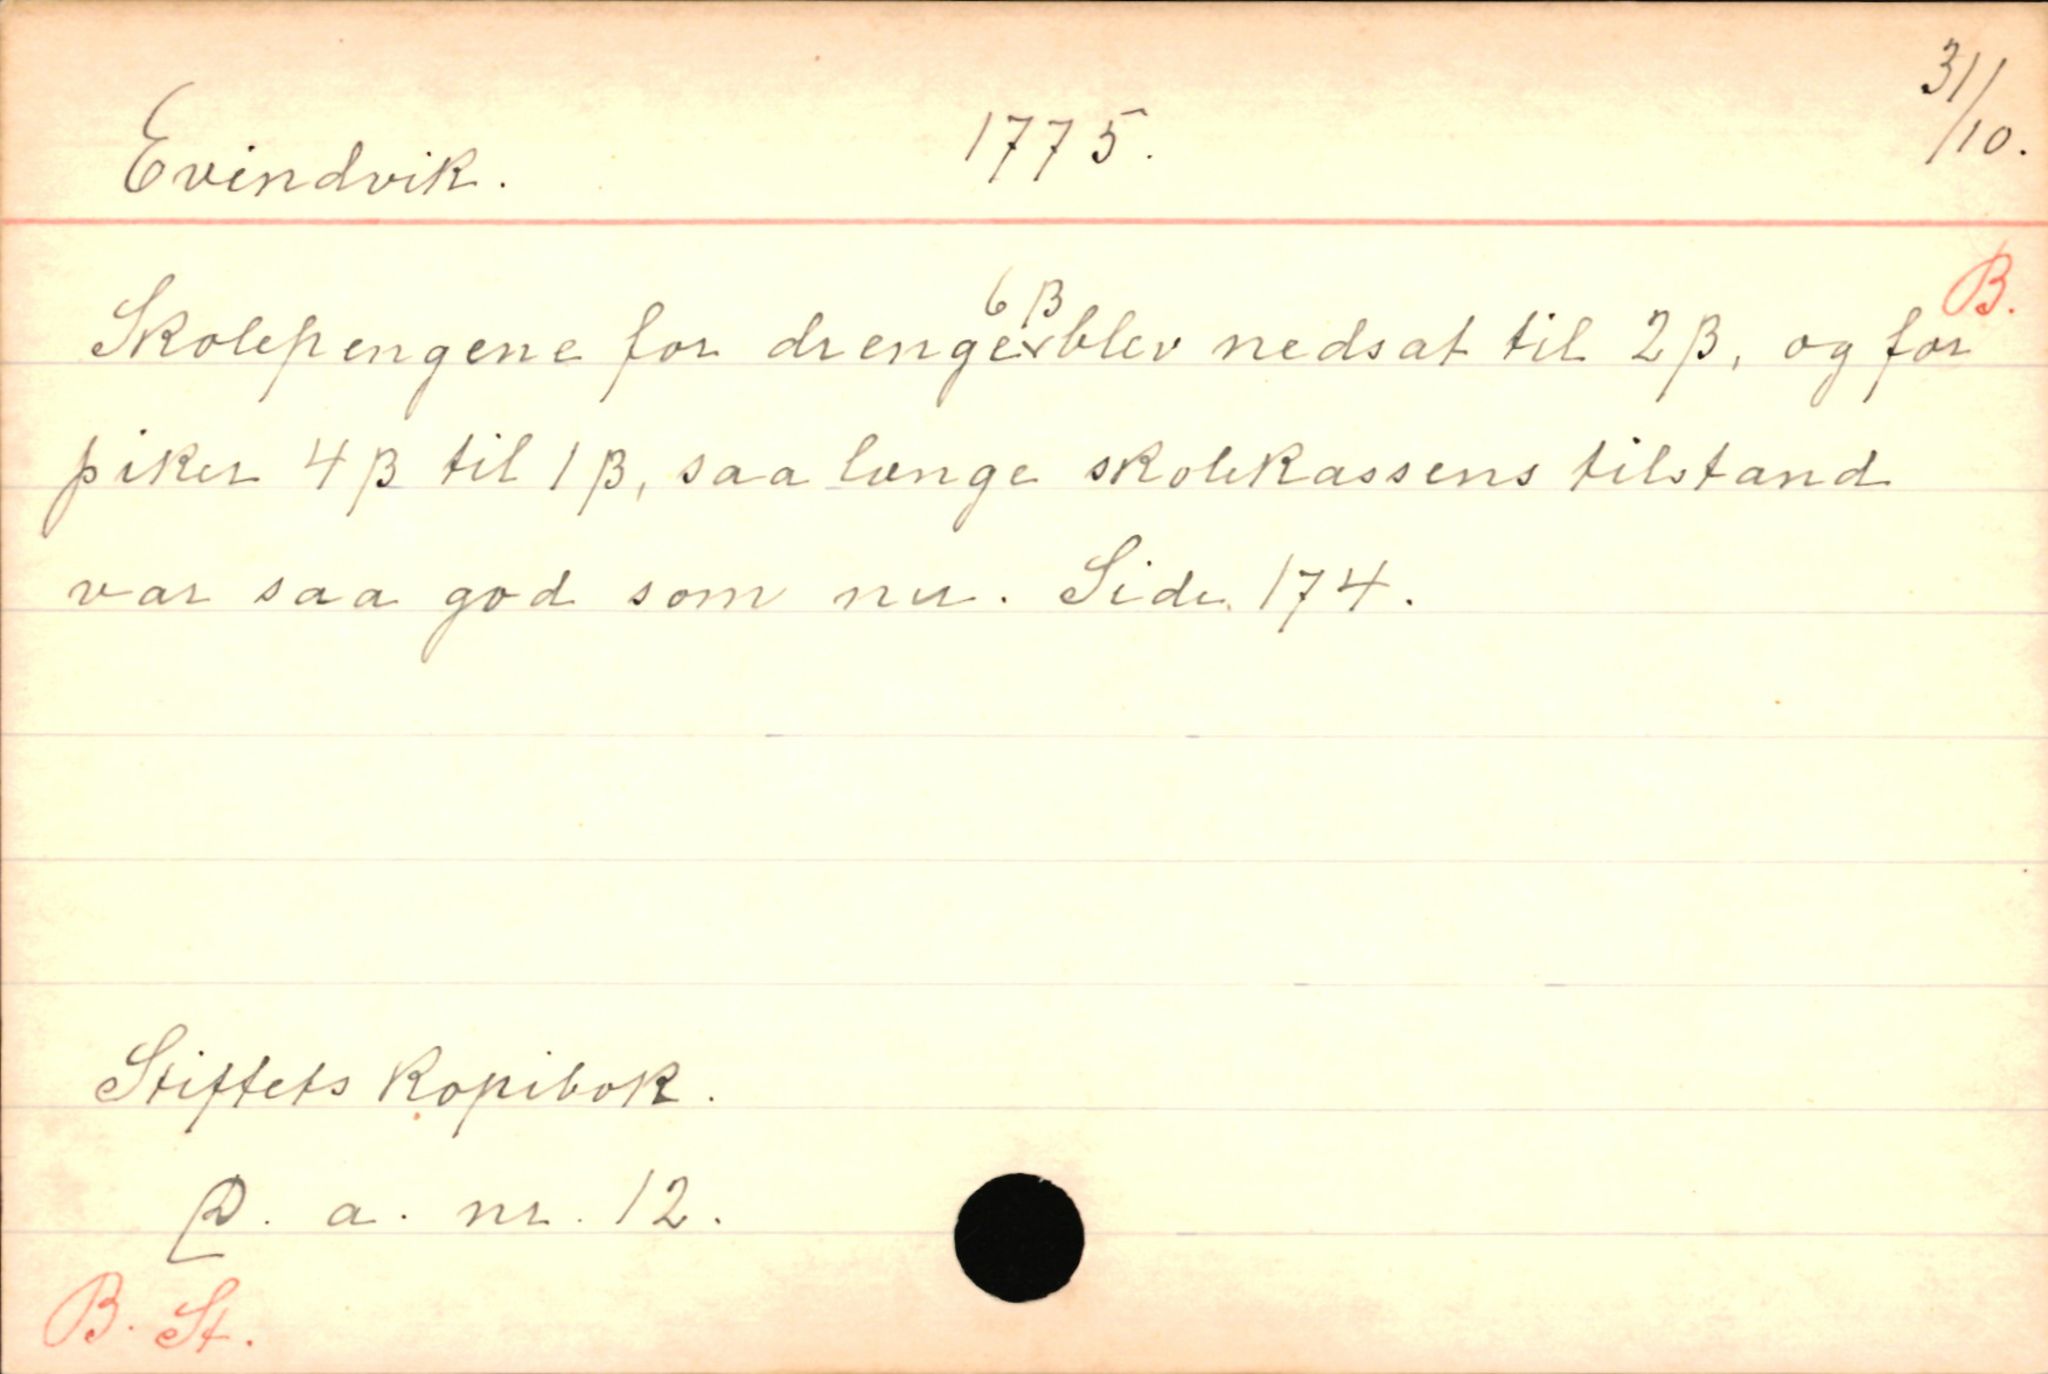 Evindvik. 1775. 31/10.
B.
Skolepengene for drenge 6 β blev nedsat til 2 β, og for
piker 4 β til 1 β, saa længe skolekassens tilstand
var saa god som nu. Side 174.
Stiftets Kopibok.
a. nr. 12.
B. St.